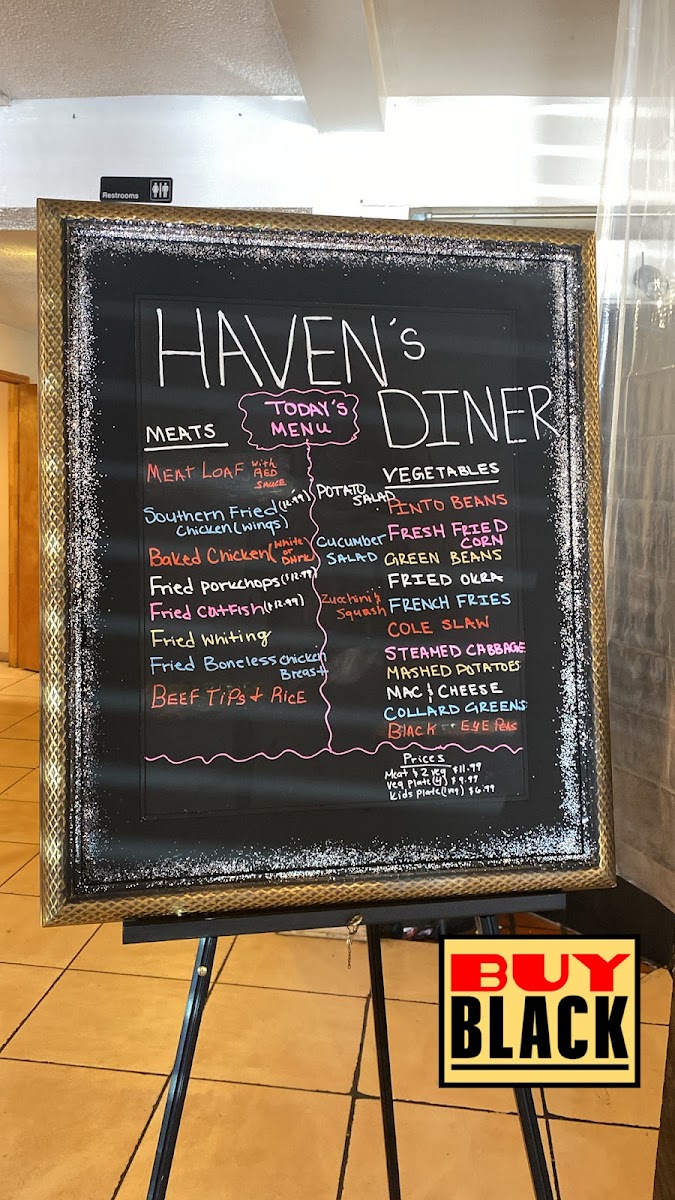 Restrooms
HAVEN's
DINER
TODAY'S
MENU
MEATS
MEAT LOAF with RED SAUCE
Southern Fried (12.99)
Chicken (wings)
Baked Chicken (White or DARK)
Fried Porkchops ($12.99)
Fried Catfish ($12.99)
Fried Whiting
Fried Boneless Chicken
Breast
BEEF TIPS + RICE
POTATO
SALAD
CUCUMBER
SALAD
Zucchini &
Squash
VEGETABLES
PINTO BEANS
FRESH FRIED
CORN
GREEN BEANS
FRIED OKRA
FRENCH FRIES
COLE SLAW
STEAMED CABBAGE
MASHED POTATOES
MAC & CHEESE
COLLARD GREENS
BLACK EYE PEAS
Prices
Meat & 2 veg $11.99
Veg Plate (4) $9.99
Kids Plate (1n1) $6.99
BUY
BLACK